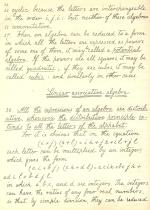 is cyclic because the letters are interchangeable
in the order i, j, k; but neither of these algebras
is commutative.
37. When an algebra can be reduced to a form
in which all the letters are expressed as powers
of some one of them, it may be called a potential
algebra. If the powers are all squares, it may be
called quadratic; if they are cubes, it may be
called cubic; and similarly in other cases.
Linear associative algebra.
38. All the expressions of an algebra are distributive,
whenever the distributive principle extends
to all the letters of the alphabet.
For it is obvious that in the equation
each letter can be multiplied by an integer,
which gives the form
in which a, b, c, and d are integers. The integers
can have the ratios of any four real numbers,
so that by simple division they can be reduced